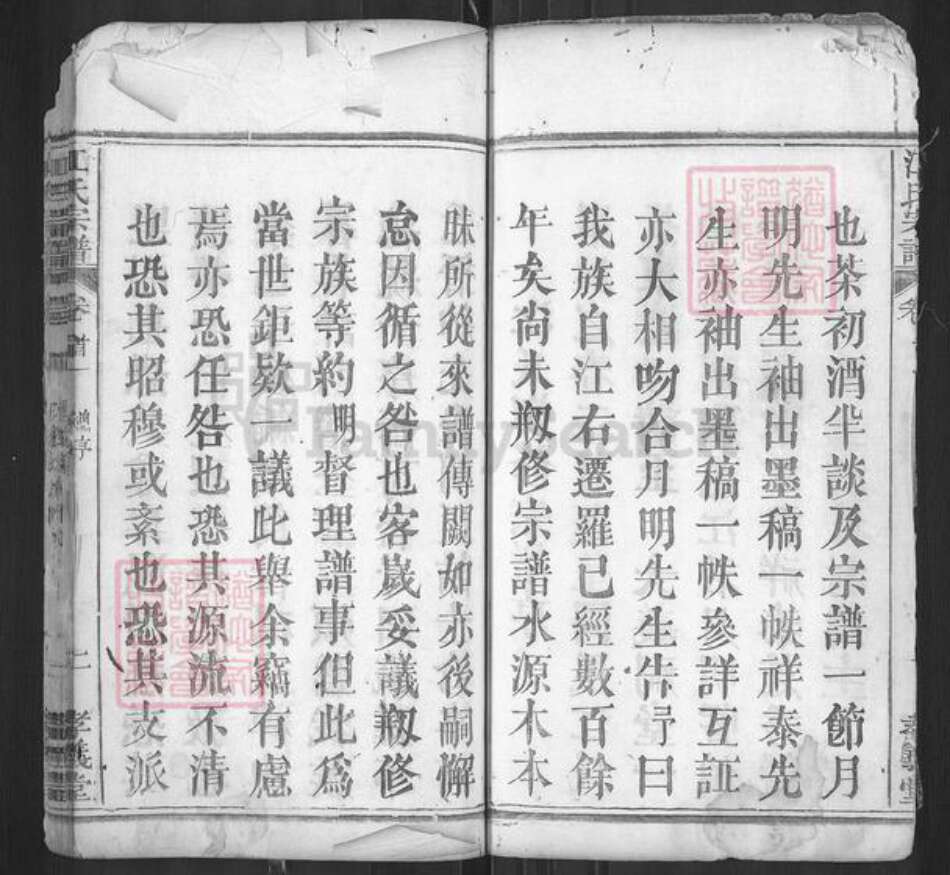 也茶初酒半談及宗譜一節月
明先生袖出墨稿一帙祥泰先
生亦袖出墨稿一帙參詳互証
亦大相吻合月明先生告予曰
我族自江右遷羅已經數百餘
年矣尚未剏修宗譜水源木本
昧所從來譜傳闕如亦後嗣懈
怠因循之咎也客嵗妥議剏修
宗族等約明督理譜事但此爲
當世鉅欵一議此舉余竊有慮
焉亦恐任咎也恐其源流不清
也恐其昭穆或紊也恐其支派
江氏宗譜
卷首
二
孝義堂
FamilySearch